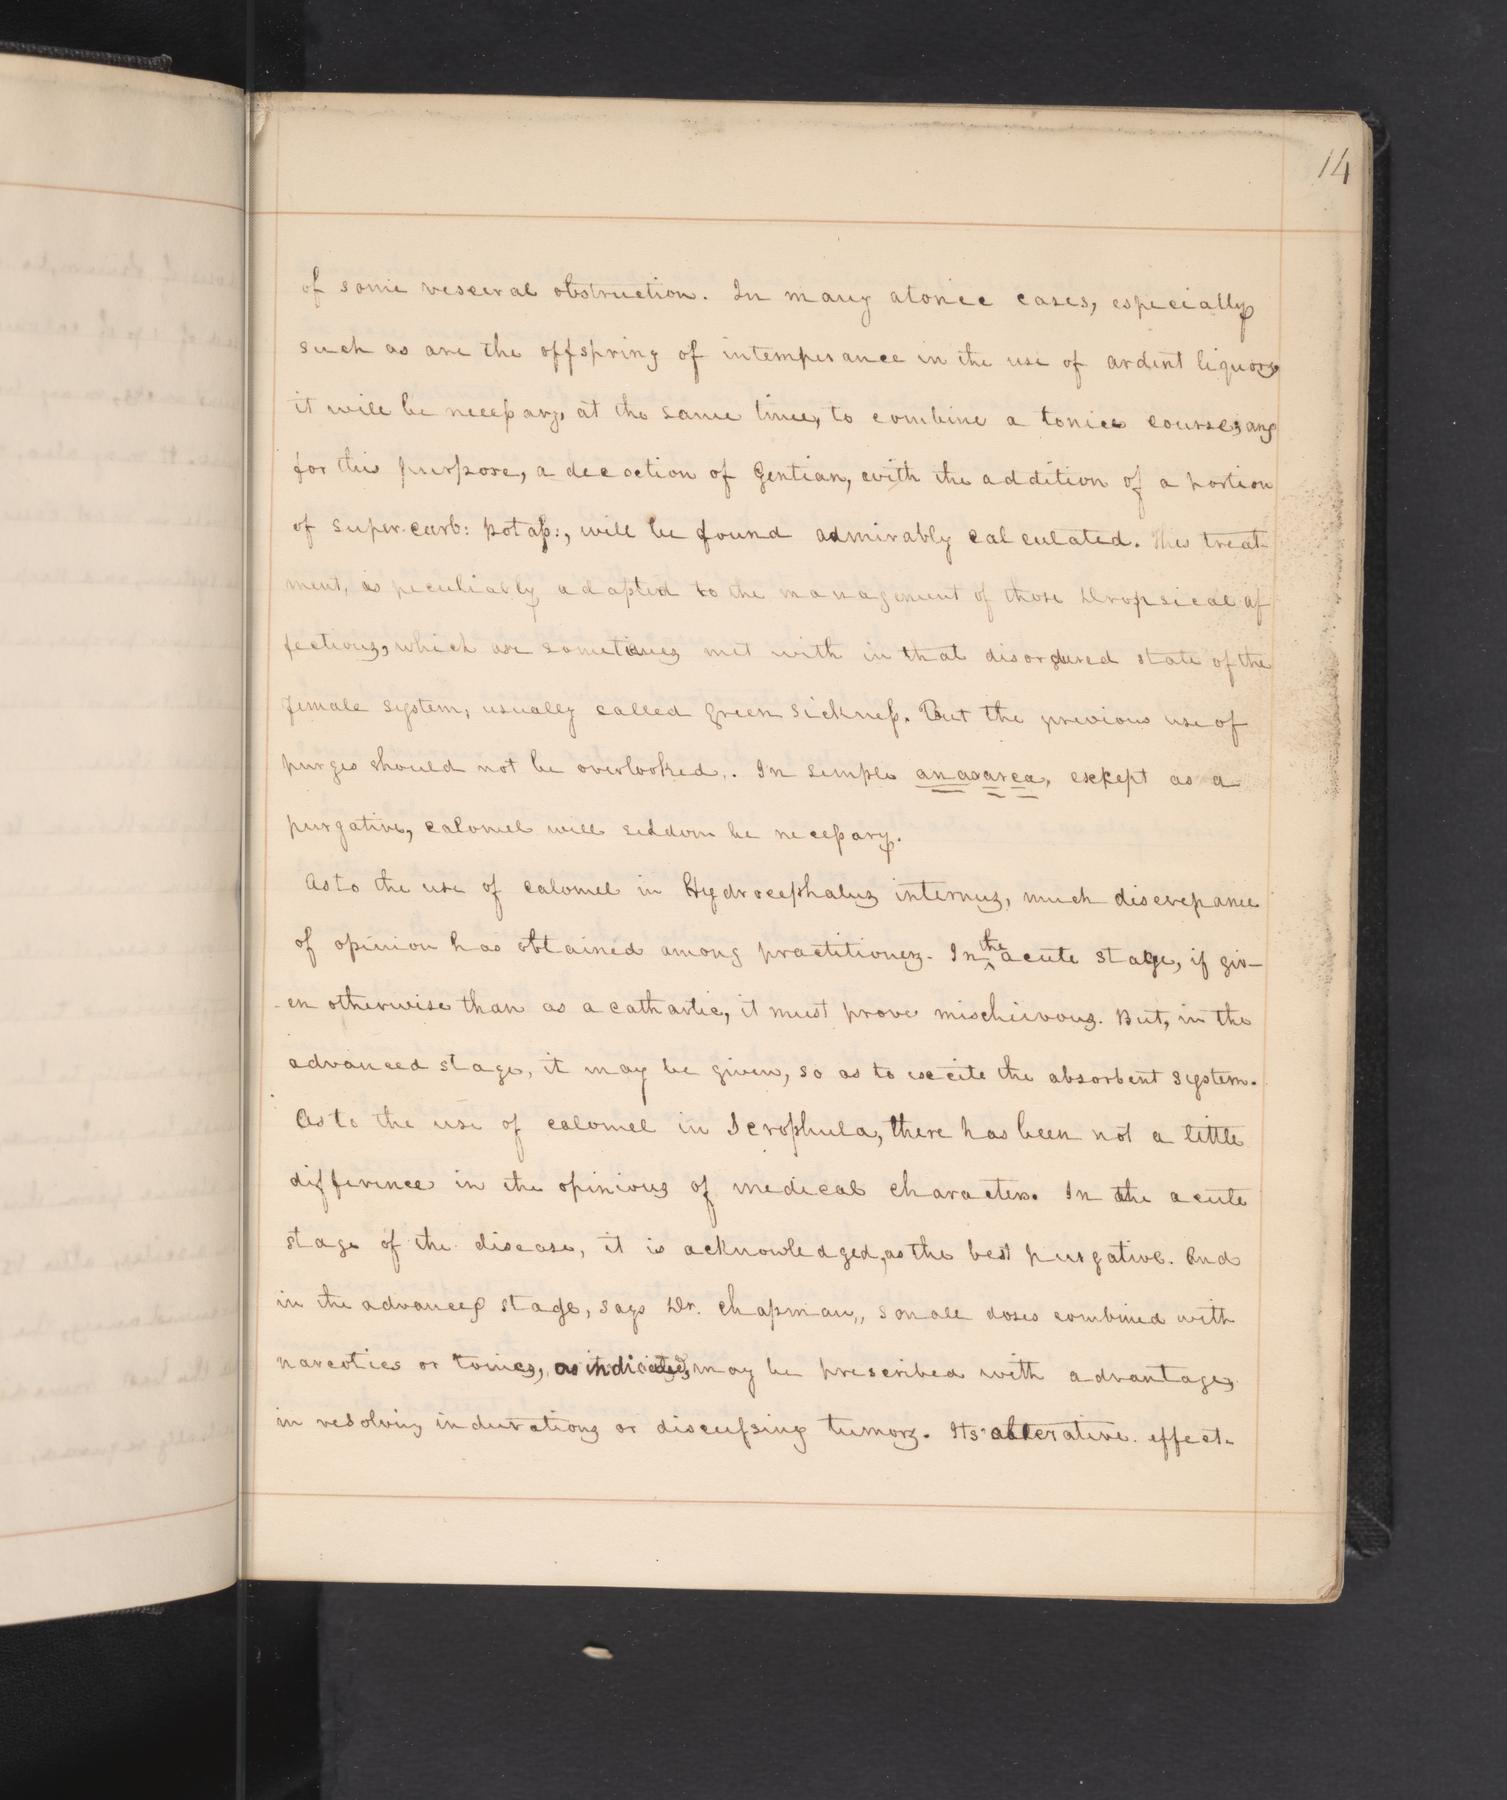 14
of some visceral obstruction. In many atonic cases, especially
such as are the offspring of intemperance in the use of ardent liquors
it will be necessary, at the same time, to combine a tonic course; and
for this purpose, a decoction of Gentian, with the addition of a portion
of super-carb: potass:, will be found admirably calculated. This treat-
ment, is peculiarly adapted to the management of those Dropsical af
fections, which are sometimes met with in that disordered state of the
female system, usually called green sickness. But the previous use of
purges should not be overlooked. In simple anasarca, except as a
purgative, calomel will seldom be necessary.
As to the use of calomel in Hydrocephalus internus, much discrepance
of opinion has obtained among practitioners. In the acute stage, if giv-
en otherwise than as a cathartic, it must prove mischievous. But, in the
advanced stage, it may be given, so as to excite the absorbent system.
As to the use of calomel in Scrophula, there has been not a little
difference in the opinions of medical characters. In the acute
stage of the disease, it is acknowledged, as the best purgative. And
in the advanced stage, says Dr. Chapman, small doses combined with
narcotics or tonics, as indicated, may be prescribed with advantage,
in resolving indurations or discussing tumors. Its alterative effect-